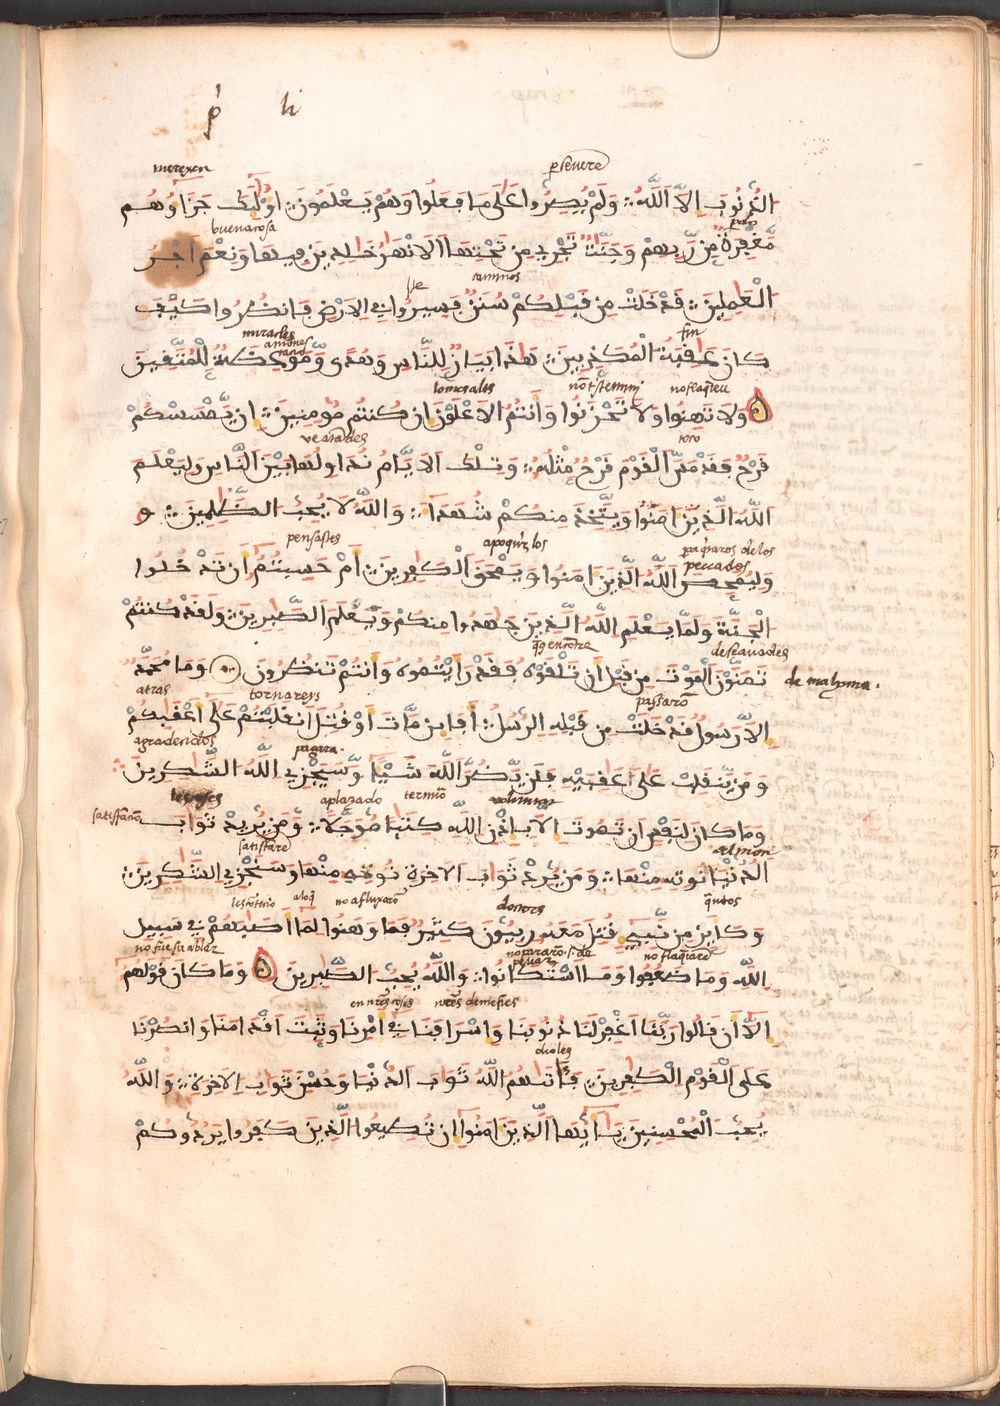 p li
merexen perseuere
الذُّنُوبَ إِلَّا اللَّهُ وَلَمْ يُصِرُّوا عَلَى مَا فَعَلُوا وَهُمْ يَعْلَمُونَ أُولَئِكَ جَزَاؤُهُم
buena cosa
مَّغْفِرَةٌ مِّن رَّبِّهِمْ وَجَنَّتٌ تَجْرِي مِن تَحْتِهَا الْأَنْهَرُ خَلِدِينَ فِيهَا وَنِعْمَ أَجْرُ
caminos
الْعَمِلِينَ قَدْ خَلَتْ مِن قَبْلِكُمْ سُنَنٌ فَسِيرُوا فِي الْأَرْضِ فَانظُرُوا كَيْفَ
miracles fin
كَانَ عَقِبَةُ الْمُكَذِّبِينَ هَذَا بَيَانٌ لِّلنَّاسِ وَهُدًى وَمَوْعِظَةٌ لِّلْمُتَّقِينَ
وَلَا تَهِنُوا وَلَا تَحْزَنُوا وَأَنتُمُ الْأَعْلَوْنَ إِن كُنتُم مُّومِنِينَ إِن يَّمْسَسْكُمْ
toco
قَرْحٌ فَقَدْ مَسَّ الْقَوْمَ قَرْحٌ مِّثْلُهُ وَتِلْكَ الْأَيَّامُ نُدَاوِلُهَا بَيْنَ النَّاسِ وَلِيَعْلَمَ
اللَّهُ الَّذِينَ آمَنُوا وَيَتَّخِذَ مِنكُمْ شُهَدَاءَ وَاللَّهُ لَا يُحِبُّ الظَّلِمِينَ
pensastes peccados
وَلِيُمَحِّصَ اللَّهُ الَّذِينَ آمَنُوا وَيَمْحَقَ الْكَفِرِينَ أَمْ حَسِبْتُمُ أَن تَدْخُلُوا
الْجَنَّةَ وَلَمَّا يَعْلَمِ اللَّهُ الَّذِينَ جَهَدُوا مِنكُمْ وَيَعْلَمَ الصَّبِرِينَ وَلَقَدْ كُنتُمْ
deseauades
تَمَنَّوْنَ الْمَوْتَ مِن قَبْلِ أَن تَلْقَوْهُ فَقَدْ رَأَيْتُمُوهُ وَأَنتُمْ تَنظُرُونَ وَمَا مُحَمَّدٌ
atras tornareys passaro
إِلَّا رَسُولٌ قَدْ خَلَتْ مِن قَبْلِهِ الرُّسُلُ أَفَإِين مَّاتَ أَوْ قُتِلَ انقَلَبْتُمْ عَلَى أَعْقَبِكُمْ
agradecidos pagara
وَمَن يَّنقَلِبْ عَلَى عَقِبَيْهِ فَلَن يَّضُرَّ اللَّهَ شَيْئًا وَسَيَجْزِي اللَّهُ الشَّكِرِينَ
aplazado termino
وَمَا كَانَ لِنَفْسٍ أَن تَمُوتَ إِلَّا بِإِذْنِ اللَّهِ كِتَبًا مُّؤَجَّلًا وَمَن يُّرِدْ ثَوَابَ
satisfare
الدُّنْيَا نُوتِهِ مِنْهَا وَمَن يُّرِدْ ثَوَابَ الْآخِرَةِ نُوتِهِ مِنْهَا وَسَنَجْزِي الشَّكِرِينَ
no afluxaro
وَكَأَيِّن مِّن نَّبِيءٍ قُتِلَ مَعَهُ رِبِّيُّونَ كَثِيرٌ فَمَا وَهَنُوا لِمَا أَصَابَهُمْ فِي سَبِيلِ
no fue su ablar
اللَّهِ وَمَا ضَعُفُوا وَمَا اسْتَكَانُوا وَاللَّهُ يُحِبُّ الصَّبِرِينَ وَمَا كَانَ قَوْلَهُمْ
إِلَّا أَن قَالُوا رَبَّنَا اغْفِرْ لَنَا ذُنُوبَنَا وَإِسْرَافَنَا فِي أَمْرِنَا وَثَبِّتَ أَقْدَامَنَا وَانصُرْنَا
dioles
عَلَى الْقَوْمِ الْكَفِرِينَ فَآتَهُمُ اللَّهُ ثَوَابَ الدُّنْيَا وَحُسْنَ ثَوَابِ الْآخِرَةِ وَاللَّهُ
يُحِبُّ الْمُحْسِنِينَ يَأَيُّهَا الَّذِينَ آمَنُوا إِن تُطِيعُوا الَّذِينَ كَفَرُوا يَرُدُّوكُمْ